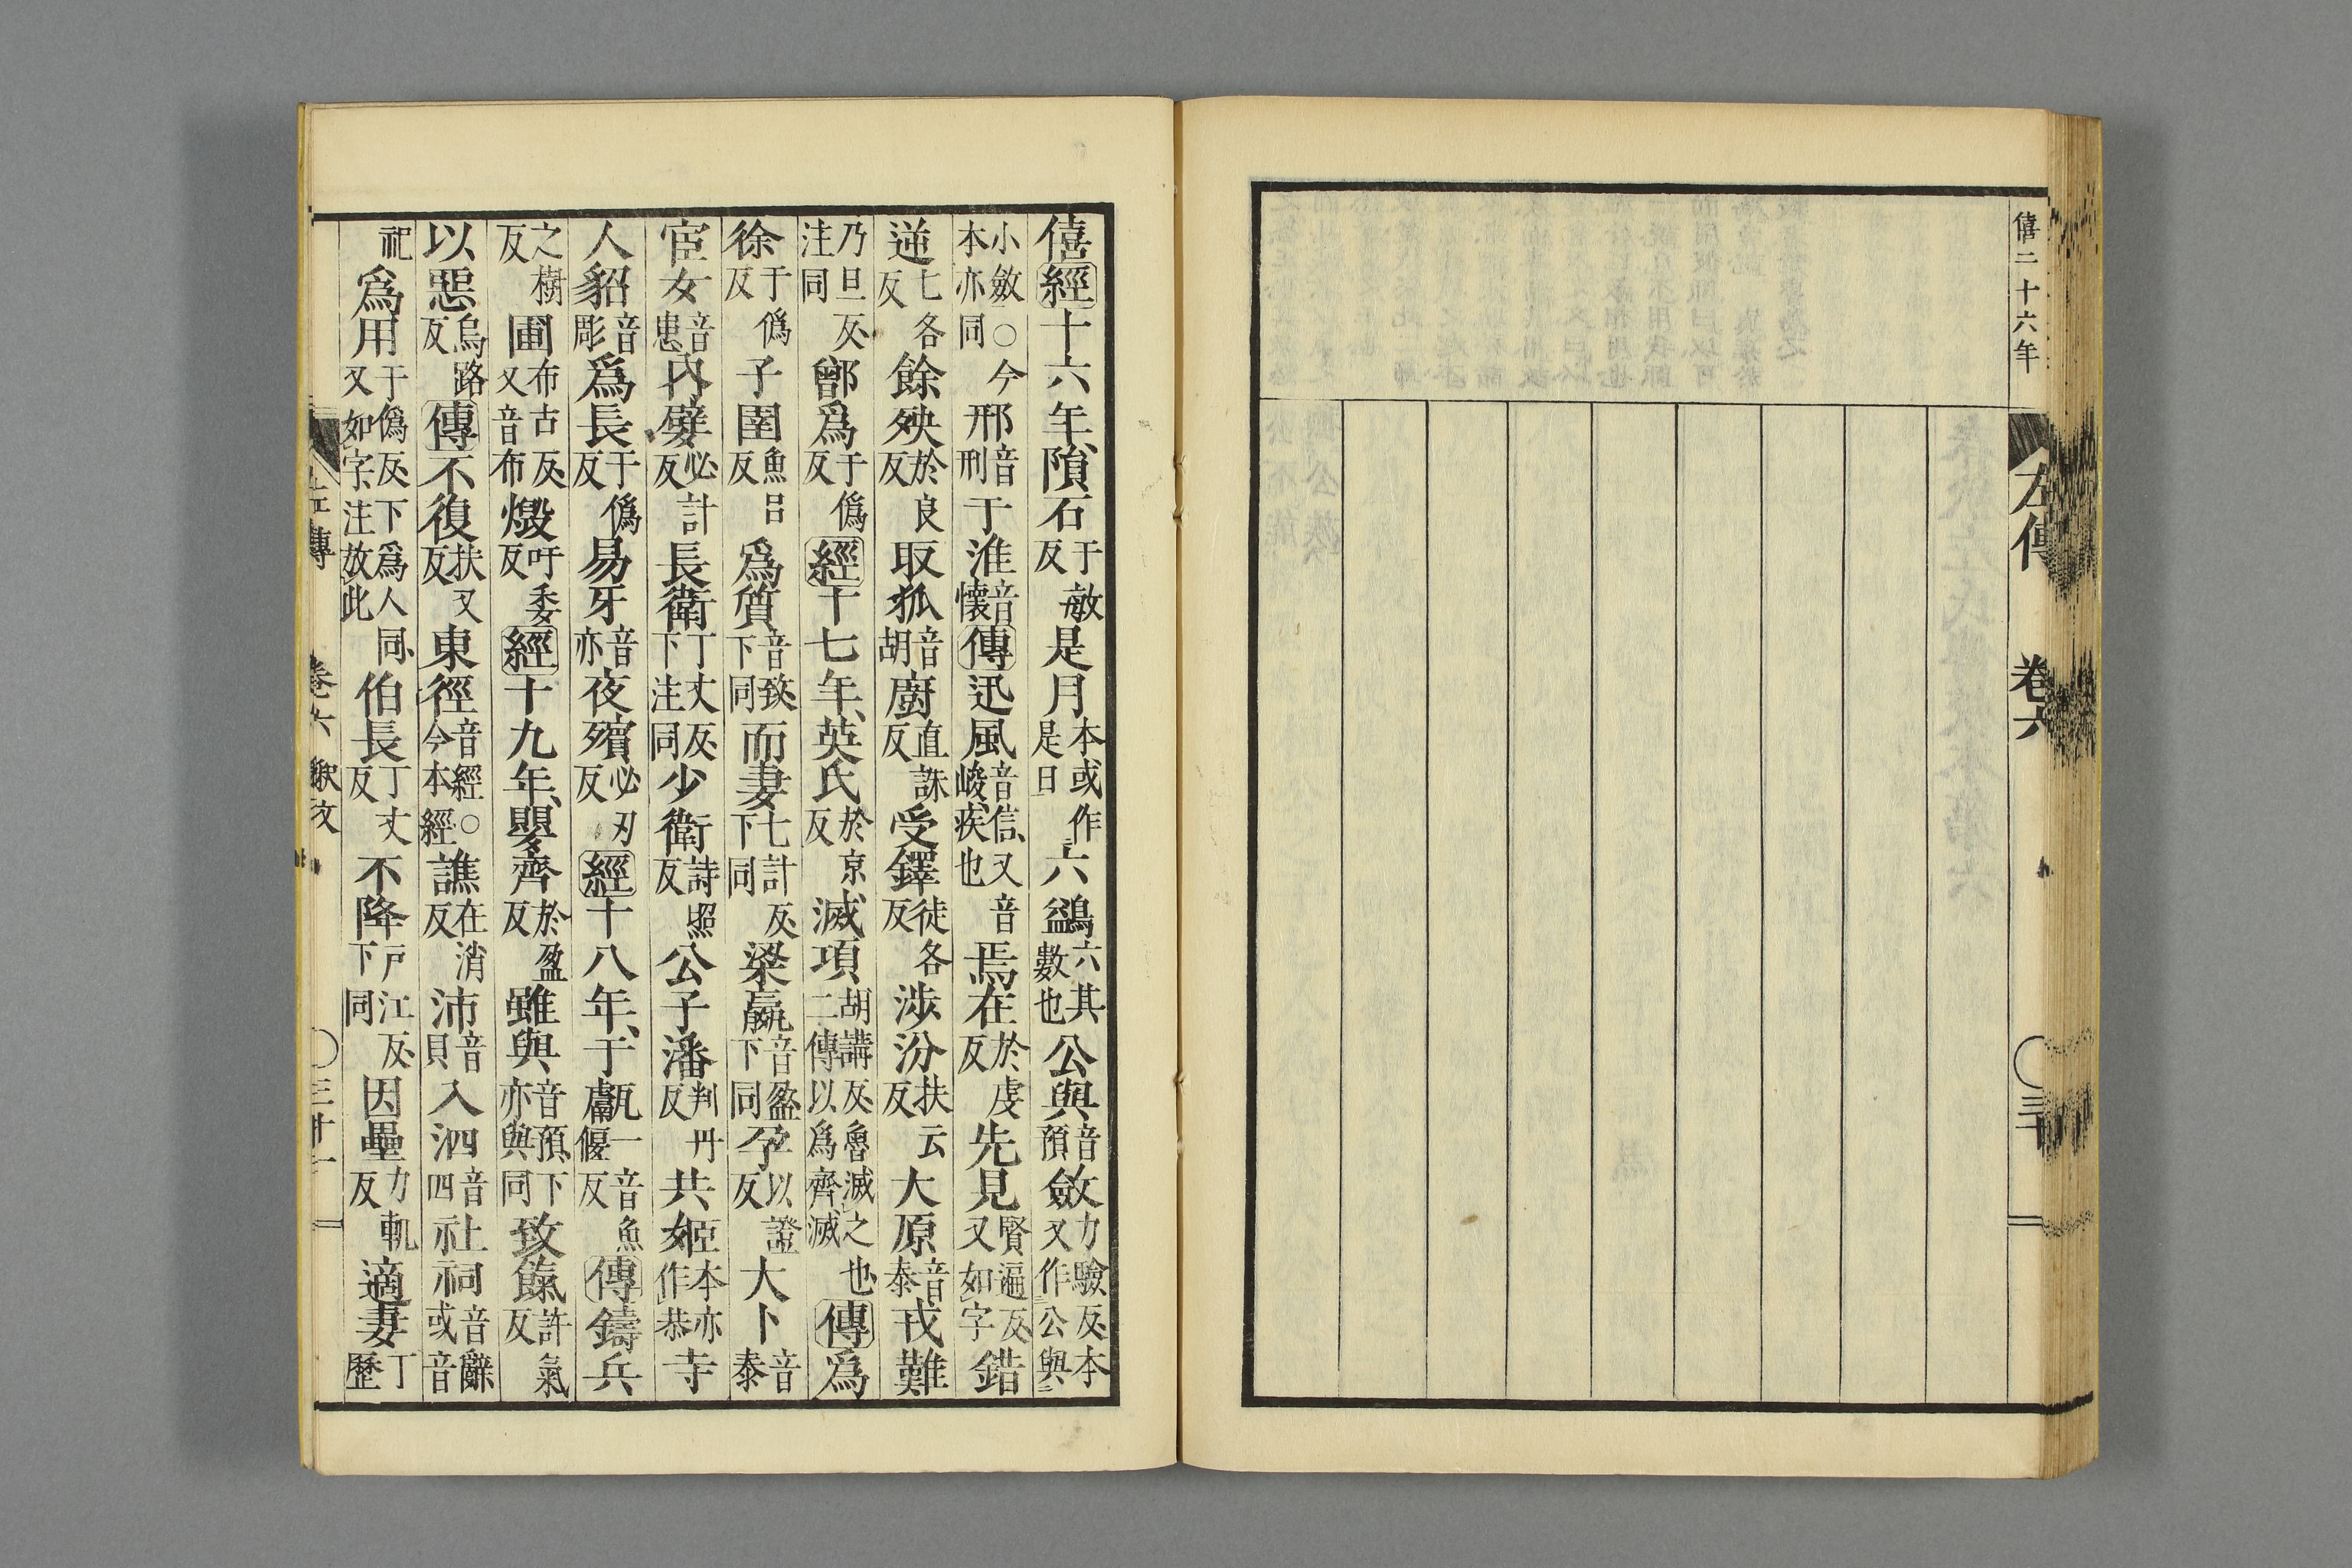 僖二十六年
左傳
卷六
三十
僖經十六年、隕石于敏反是月本或作是日六鷁六其數也公與音預斂力驗反、本又作公與
小斂○今本亦同邢音刑于淮音懷傳迅風音信、又音峻、疾也焉在於虔反先見賢遍反、又如字錯
七各反逆餘殃於良反取狐音胡廚直誅反受鐸徒各反涉汾扶云反大原音泰戎難
乃旦反、注同鄫爲于僞反經十七年、英氏於京反滅項胡講反、魯滅之也二傳以爲齊滅傳爲
徐于僞反子圉魚呂反爲質音致、下同而妻七計反、下同梁嬴音盈、下同孕以證反大卜音泰
宦女音患內嬖必計反長衛丁丈反、下注同少衛詩照反公子潘判丹反共姬本亦作恭寺
人貂音彫爲長于僞反易牙音亦夜殯必刃反經十八年、于甗一音魚偃反傳鑄兵
之樹反圃布古反、又音布燬吁委反經十九年、嬰齊於盈反雖與音預、下亦與同致餼許氣反
以惡烏路反傳不復扶又反東徑音經○今本經譙在消反沛音貝入泗音四社祠音辭或音
祀爲用于僞反、下爲人同、又如字、注放此伯長丁丈反不降戶江反、下同因壘力軌反適妻丁歷
左傳
卷六
釈文
三十一